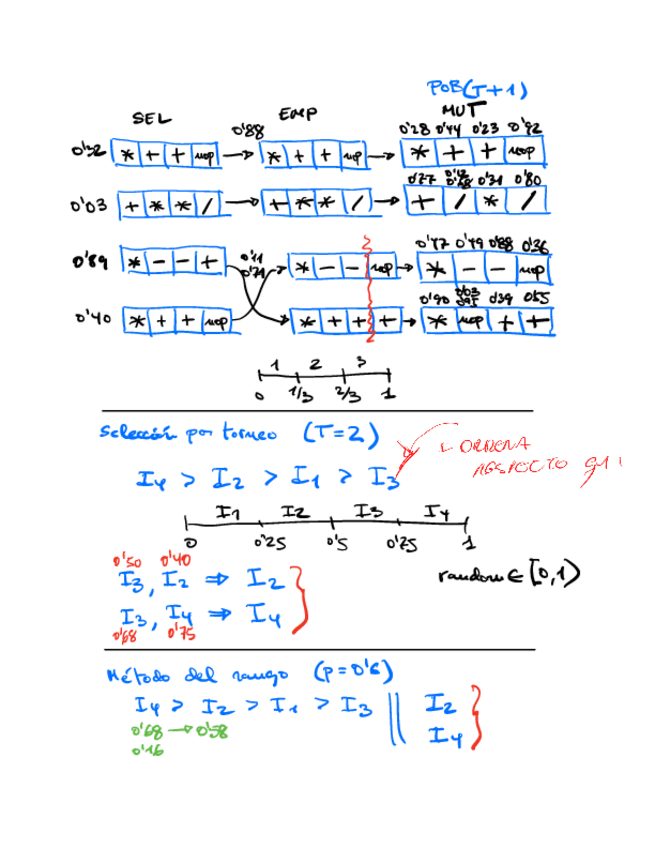 POB(T+1)
SEL EMP MUT
0'32 * + + nop 0'88 * + + nop 0'28 0'44 0'23 0'92 * + + nop
0'03 + * * / + * * / 0'27 0'12 0'68 0'31 0'80 + / * /
0'89 * − − + 0'11 0'74 * − − nop 0'47 0'49 0'88 0'36 * − − nop
0'40 * + + nop * + + + 0'90 0'03 0'95 0'39 0'55 * nop + +
1 2 3
0 1/3 2/3 1
Selección por torneo (T=2)
ORDENA
RESPECTO
I4 > I2 > I1 > I3
I1 I2 I3 I4
0 0'25 0'5 0'75 1
0'50 0'40
I3, I2 ⇒ I2
random ∈ [0,1)
I3, I4 ⇒ I4
0'68 0'75
Método del rango (p=0'6)
I4 > I2 > I1 > I3 || I2
0'68 → 0'58 I4
0'16